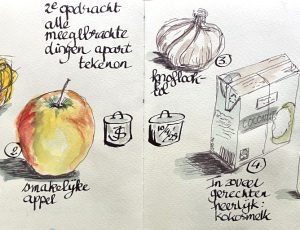 2e opdracht
alle
meegebrachte
dingen apart
tekenen
3
knoflook-
bol
2
smakelijke
appel
10/4
COCONUT
4
In zoveel
gerechten
heerlijk:
kokosmelk